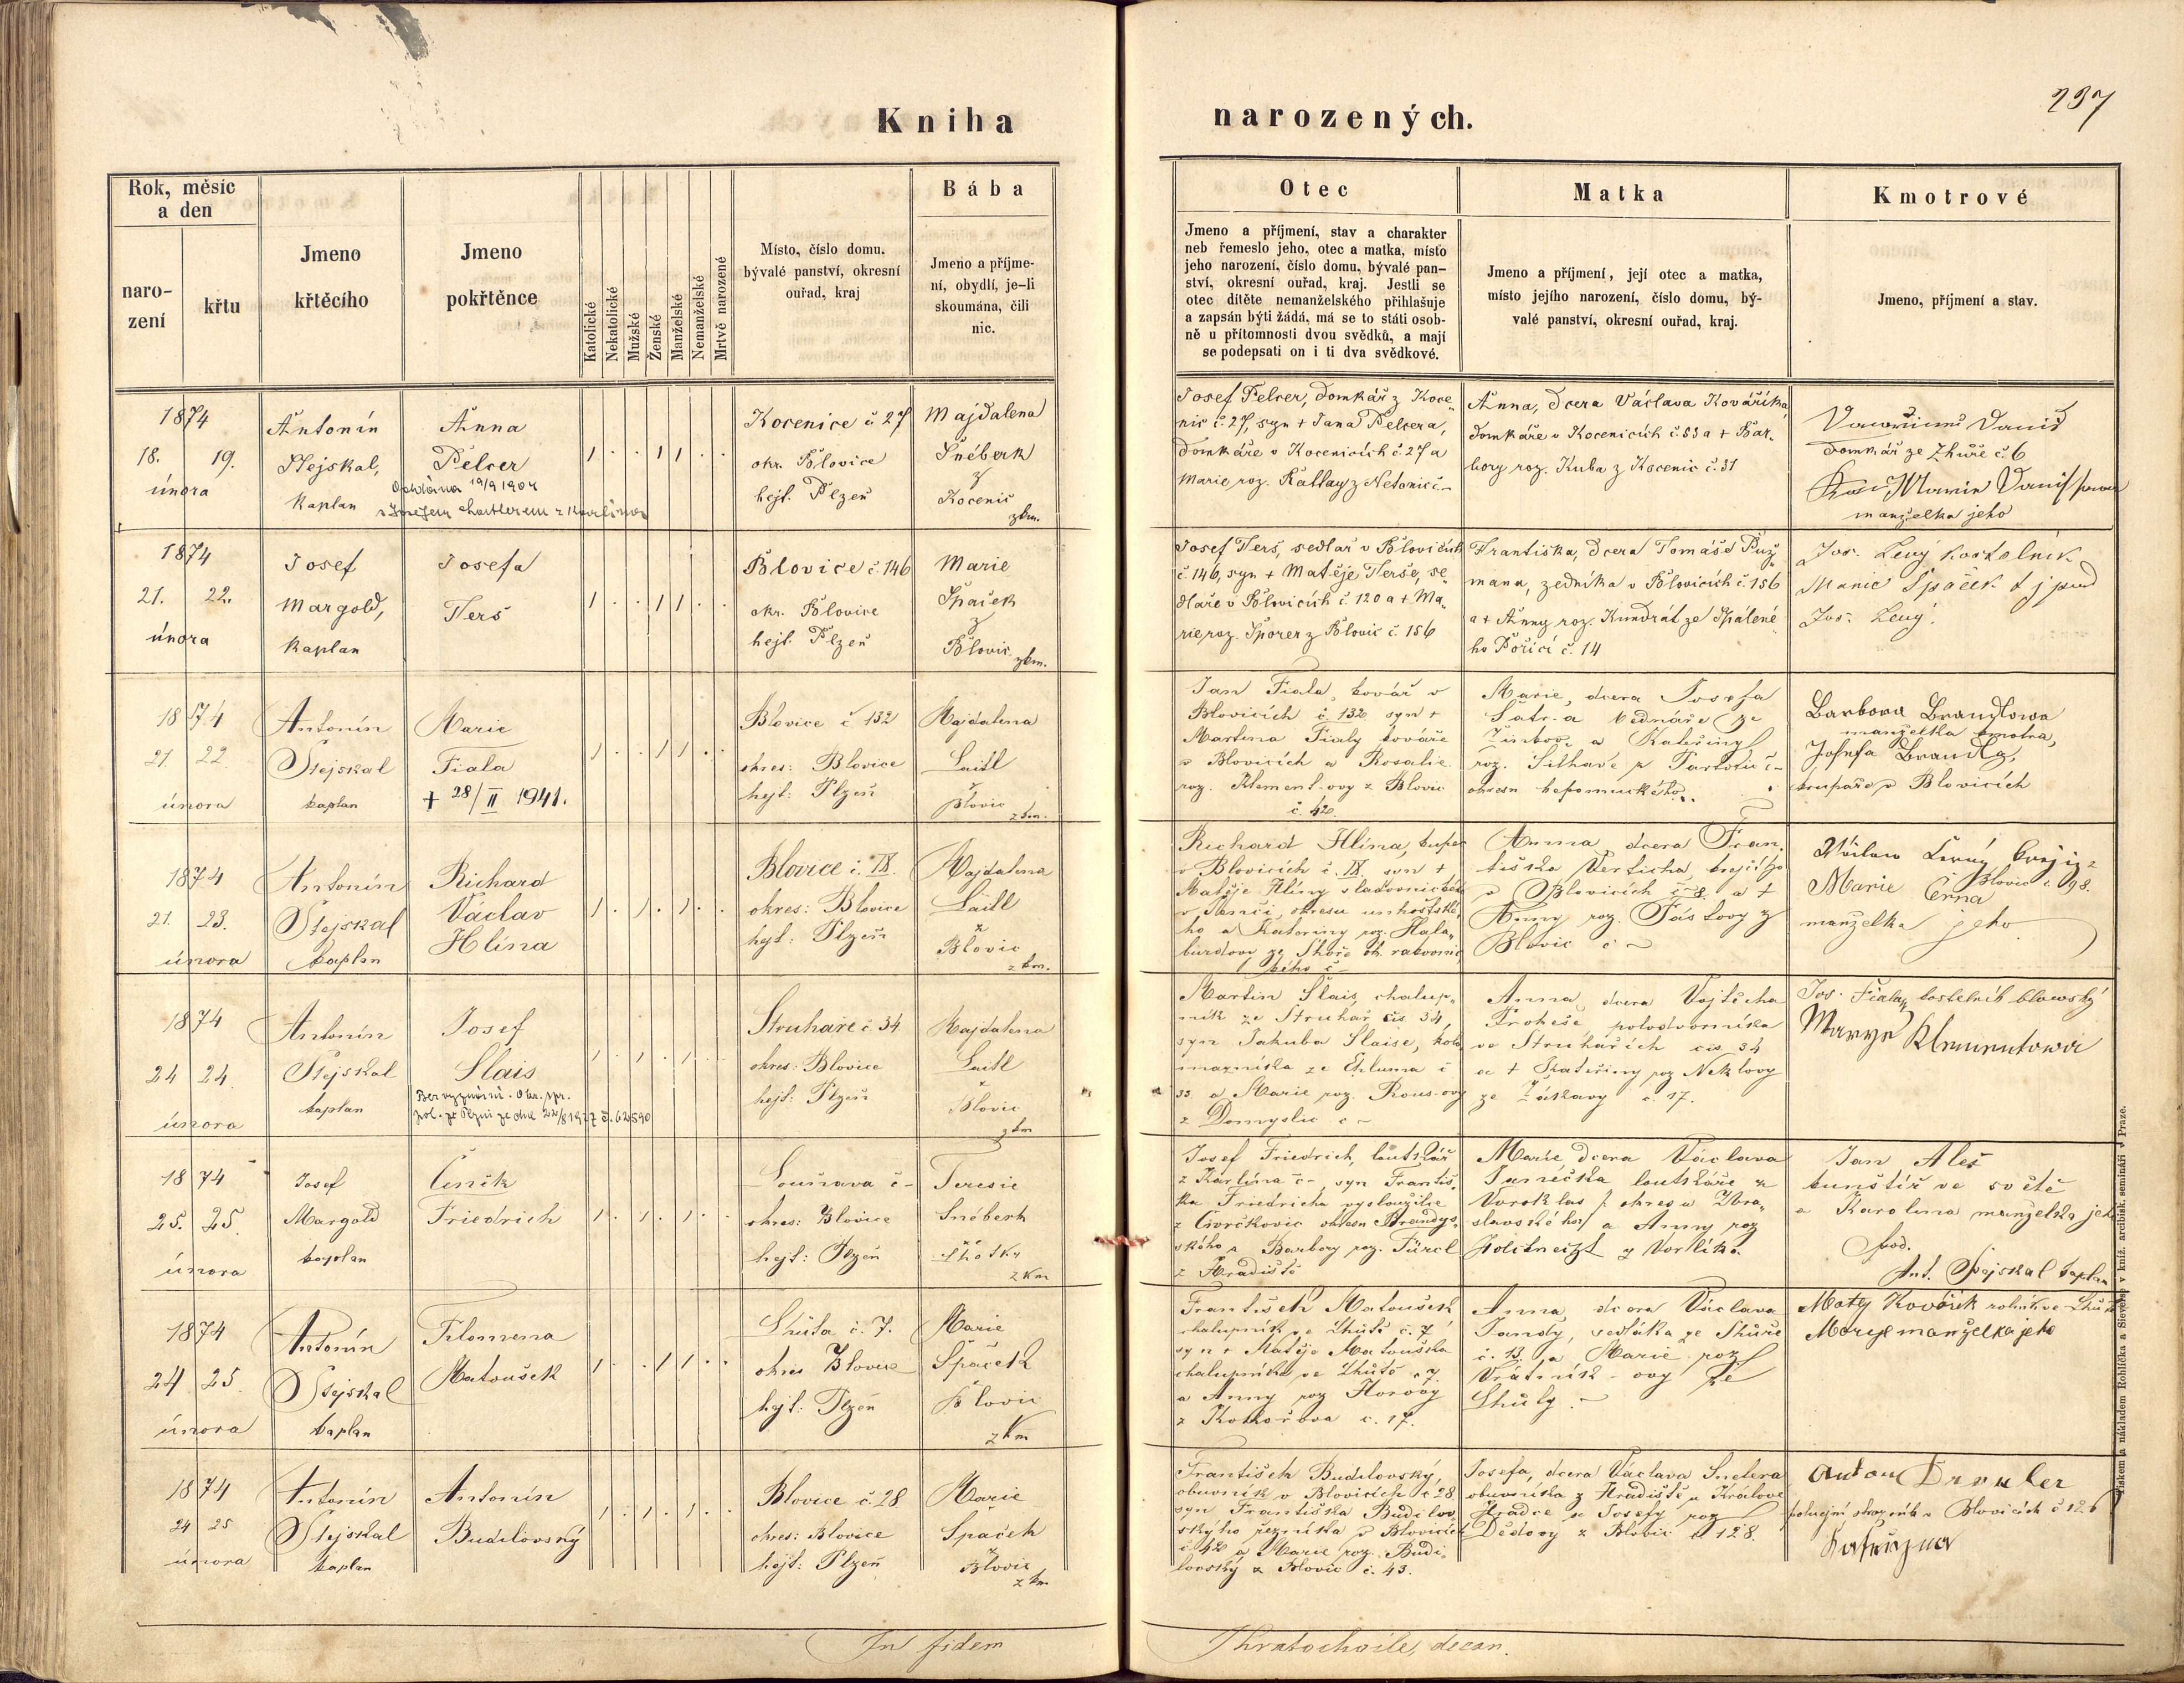 Kniha narozených.
237
Rok, měsíc
a den
naro-
zení
křtu
Jmeno
křtěcího
Jmeno
pokřtěnce
Katolické
Nekatolické
Mužské
Ženské
Manželské
Nemanželské
Mrtvě narozené
Místo, číslo domu.
bývalé panství, okresní
ouřad, kraj
Bába
Jmeno a příjme-
ní, obydlí, je-li
skoumána, čili
nic.
Otec
Jmeno a příjmení, stav a charakter
neb řemeslo jeho, otec a matka, místo
jeho narození, číslo domu, bývalé pan-
ství, okresní ouřad, kraj. Jestli se
otec dítěte nemanželského přihlašuje
a zapsán býti žádá, má se to státi osob-
ně u přítomnosti dvou svědků, a mají
se podepsati on i ti dva svědkové.
Matka
Jmeno a příjmení, její otec a matka,
místo jejího narození, číslo domu, bý-
valé panství, okresní ouřad, kraj.
Kmotrové
Jmeno, příjmení a stav.
1874
18. 19.
února
Antonín
Stejskal,
kaplan
Anna
Pelcer
19/9 1904
Kocenice č 27
okr. Blovice
hejt. Plzeň
Majdalena
Šnéberk
z
Kocenic
zkm.
Josef Pelcer, domkář z Koce-
nic č. 27, syn + Jana Pelcera,
domkáře v Kocenicích č. 27 a
Marie, roz. Kallay z Netonic č –
Anna, dcera Václava Kováříka,
domkáře v Kocenicích č. 33 a + Bar-
bory roz. Kuba z Kocenic č. 31
domkář ze Zhůře č. 6
manželka jeho
1874
21. 22.
února
Josef
Margold,
kaplan
Josefa
Terš
Blovice č. 146
okr. Blovice
hejt. Plzeň
Marie
Špaček
z
Blovic
zkm.
Josef Terš, sedlář v Blovicích
č. 146, syn + Matěje Terše, se-
dláře v Blovicích č. 120 a + Ma-
rie roz. Šporer z Blovic č. 156
Františka, dcera Tomáše Puz-
mana, zedníka v Blovicích č. 156
a + Anny roz. Kundrát ze Spálené-
ho Poříčí č. 14
Jos. Levý kostelník
Marie Špaček
Jos. Levý.
1874
21 22.
února
Antonín
Stejskal
kaplan
Marie
Fiala
+ 28/II 1941.
Blovice č 132
okres: Blovice
hejt: Plzeň
Majdalena
Laitl
z
Blovic
z km.
Jan Fiala, kovář v
Blovicích č. 132 syn +
Martina Fialy kováře
v Blovicích a Rosalie
roz. Klement-ovy z Blovic
č. 42
Marie, dcera Josefa
bednáře ze
a Kateřiny
roz.
okresu nepomuckého
Barbora Brandlowa
manželka kmotra,
Josefa Brandla,
krupaře v Blovicích
1874
21. 23.
února
Antonín
Stejskal
kaplan
Richard
Václav
Hlína
Blovice č. IX.
okres: Blovice
hejt: Plzeň
Majdalena
Laitl
z
Blovic
z km.
Richard Hlína, kupec
v Blovicích č. IX. syn +
Matěje Hlíny
okresu unhošťské-
ho a Kateřiny roz. Hala-
Anna dcera Fran-
tiška krejčího
v Blovicích č. 8. a +
Anny roz. z
Blovic č –
Václav Černý krejčí z
Blovic č 98.
Marie Černá
manželka jeho
1874
24 24.
února
Antonín
Stejskal
kaplan
Josef
Slais
Bez vyznání. Okr. spr.
Struhaře č. 34
okres: Blovice
hejt: Plzeň
Majdalena
Laitl
z
Blovic
z km
Martin Slais, chalup-
ník ze Struhař čís. 34,
syn Jakuba Slaise,
ze Chluma č
33. a Marie roz. Rous-ovy
z Domyslic č –
Anna, dcera Vojtěcha
Prokeše, polodvorníka
ve Struhařích čís. 34
a + Kateřiny roz Neklovy
č. 17.
Jos. Fiala, kostelník blowský
Marye Klementowa
1874
25. 25.
února
Josef
Margold
kaplan
Čeněk
Friedrich
č –
okres: Blovice
hejt: Plzeň
Teresie
Šnéberk
z Km
Josef Friedrich, loutkář
z Karlína č –, syn Františ-
ka Friedricha vysloužilce
okresu Brandýs-
ského a Barbory roz. Fürcl
z Hradiště
Marie dcera Václava
Janečka loutkáře z
a Anny roz
Jan Aleš
kunštíř ve světě
a Karolina manželka jeho
pod.
Ant. Stejskal kaplan
1874
24 25.
února
Antonín
Stejskal
kaplan
Filomena
Matoušek
Lhůta č. 7.
okres Blovice
hejt: Plzeň
Marie
Špaček
Blovic
z Km
František Matoušek
chalupník ve Lhůtě č. 7,
syn + Matěje Matouška
chalupníka ve Lhůtě č 7
a Anny roz Horovy
č. 17.
Anna, dcera Václava
Jandy, sedláka ze Lhůty
č. 13. a Marie roz
Vrátník-ovy ze
Lhůty. –
Matěj Kovařík rolník ve Lhůtě
Marye manželka jeho
1874
24 25
února
Antonín
Stejskal
kaplan
Antonín
Budilovský
Blovice č. 28
okres: Blovice
hejt: Plzeň
Marie
Špaček
z
Blovic
z km
František Budilovský,
obuvník v Blovicích č 28
syn Františka Budilov-
ského řezníka v Blovicích
č 42 a Marie roz. Budi-
lovský z Blovic č. 43.
Josefa, dcera Václava Šnelera
obuvníka z Hradiště u Králové
Hradce a Josefy roz
Dědovy z Blovic č 128.
v Blovicích č 126
In fidem
Kratochvile, decan.
Tiskem a nákladem Rohlíčka a Sieverse v kníž. arcibisk. semináři v Praze.